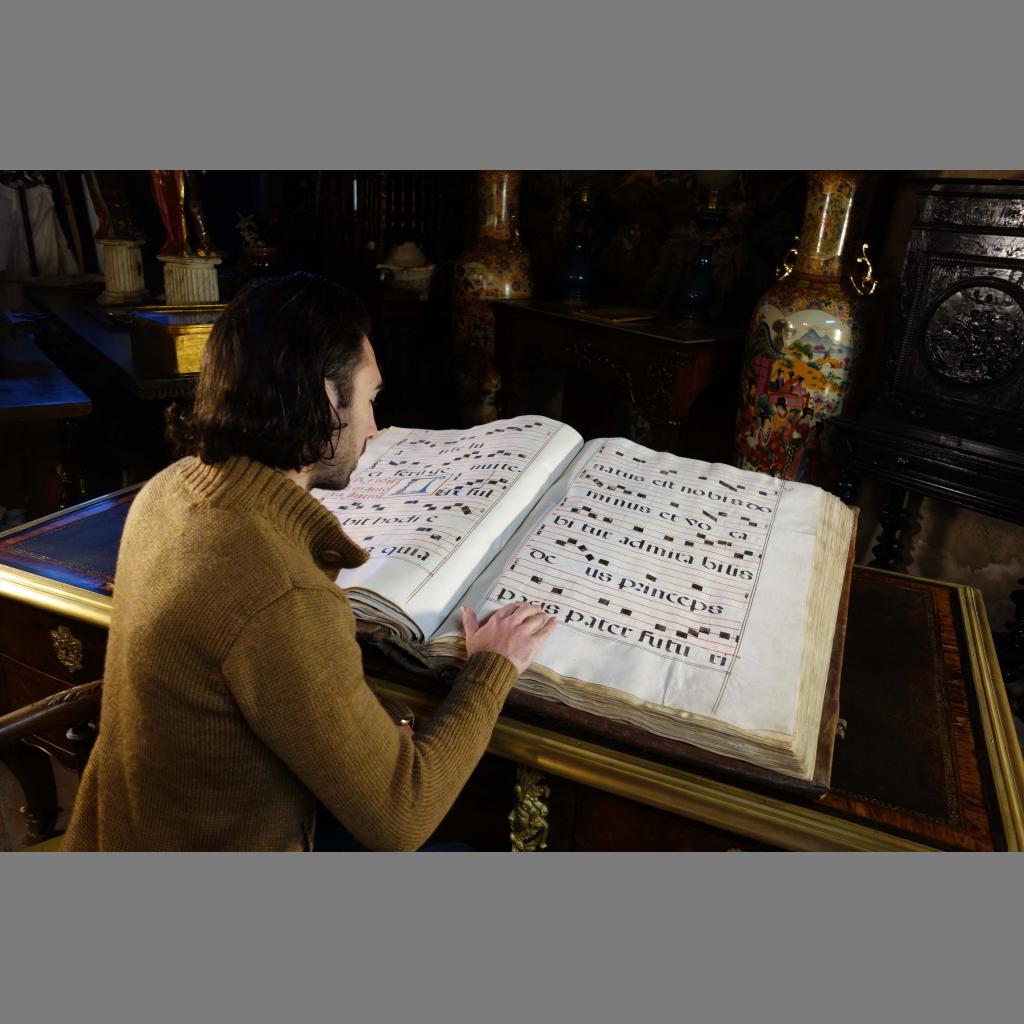 te lu
fulge nunte
Lux ful
bit hodi e
quia
natus est nobis do
minus et vo ca
bi tur admira bilis
de us princeps
pacis pater futu ri